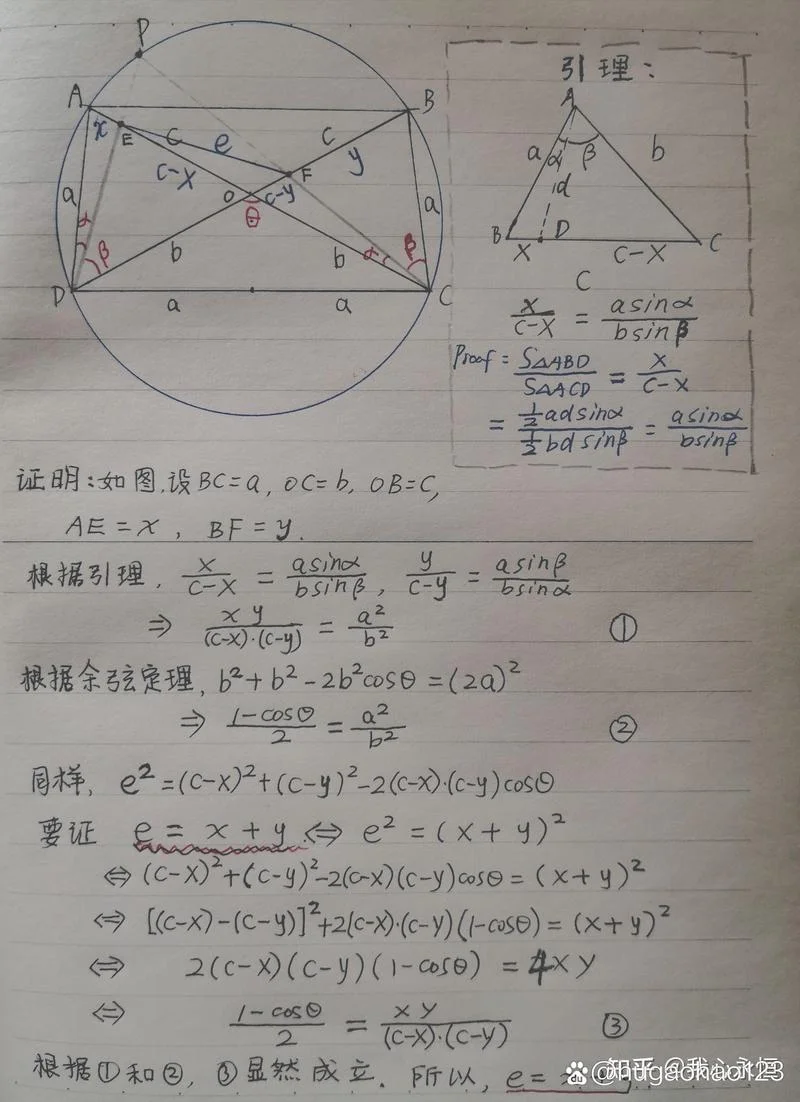 P
A
B
x
E
c
e
c
y
c-x
F
a
α
O
c-y
a
θ
β
b
b
α
β
D
C
a
a
引理:
A
a
α
β
b
d
B
D
C
x
c-x
C
x/(c-x) = asinα/bsinβ
Proof = S△ABD/S△ACD = x/(c-x)
= ½adsinα/½bdsinβ = asinα/bsinβ
证明:如图,设BC=a, OC=b, OB=C,
AE=x, BF=y.
根据引理, x/(c-x) = asinα/bsinβ, y/(c-y) = asinβ/bsinα
⇒ xy/((c-x)·(c-y)) = a²/b² ①
根据余弦定理, b²+b²-2b²cosθ=(2a)²
⇒ (1-cosθ)/2 = a²/b² ②
同样, e²=(c-x)²+(c-y)²-2(c-x)·(c-y)cosθ
要证 e = x+y ⇔ e²=(x+y)²
⇔ (c-x)²+(c-y)²-2(c-x)(c-y)cosθ=(x+y)²
⇔ [(c-x)-(c-y)]²+2(c-x)·(c-y)(1-cosθ)=(x+y)²
⇔ 2(c-x)(c-y)(1-cosθ) = 4xy
⇔ (1-cosθ)/2 = xy/((c-x)·(c-y)) ③
根据①和②, ③显然成立. 所以, e=
知乎 @我心永恒